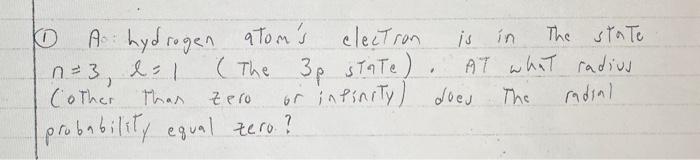 ① A hydrogen atom's electron is in The state
n=3, l=1 (The 3p state). AT what radius
(other Than zero or infinity) does The radial
probability equal zero?